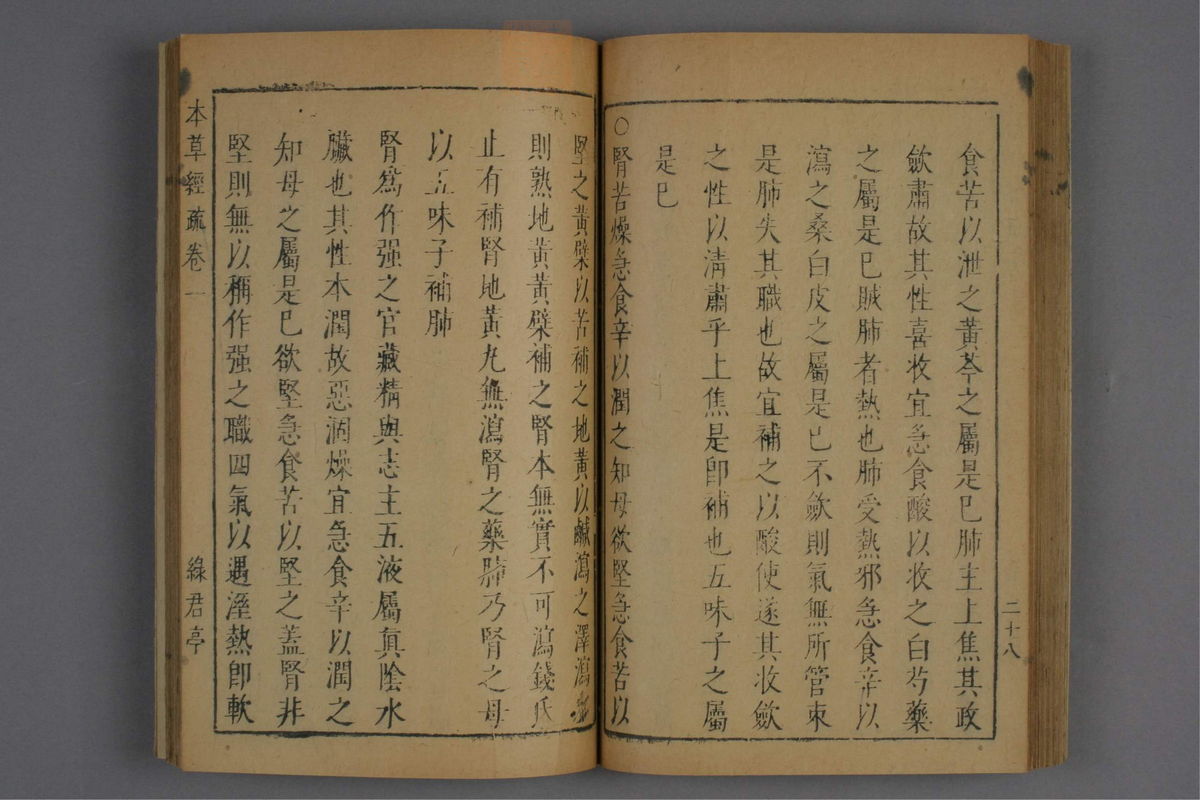 食苦以泄之黃芩之屬是巳肺主上焦其政
歛肅故其性喜收宜急食酸以收之白芍藥
之屬是巳賊肺者熱也肺受熱邪急食辛以
瀉之桑白皮之屬是已不歛則氣無所管束
是肺失其職也故宜補之以酸使遂其收歛
之性以清肅乎上焦是卽補也五味子之屬
是巳
○腎苦燥急食辛以潤之知母欲堅急食苦以
二十八
堅之黃檗以苦補之地黃以鹹瀉之澤瀉
則熟地黃黃檗補之腎本無實不可瀉錢氏
止有補腎地黃丸無瀉腎之藥肺乃腎之母
以五味子補肺
腎爲作强之官藏精與志主五液屬眞陰水
臟也其性本潤故惡涸燥宜急食辛以潤之
知母之屬是巳欲堅急食苦以堅之蓋腎非
堅則無以稱作强之職四氣以遇溼熱卽軟
本草經疏卷一
綠君亭